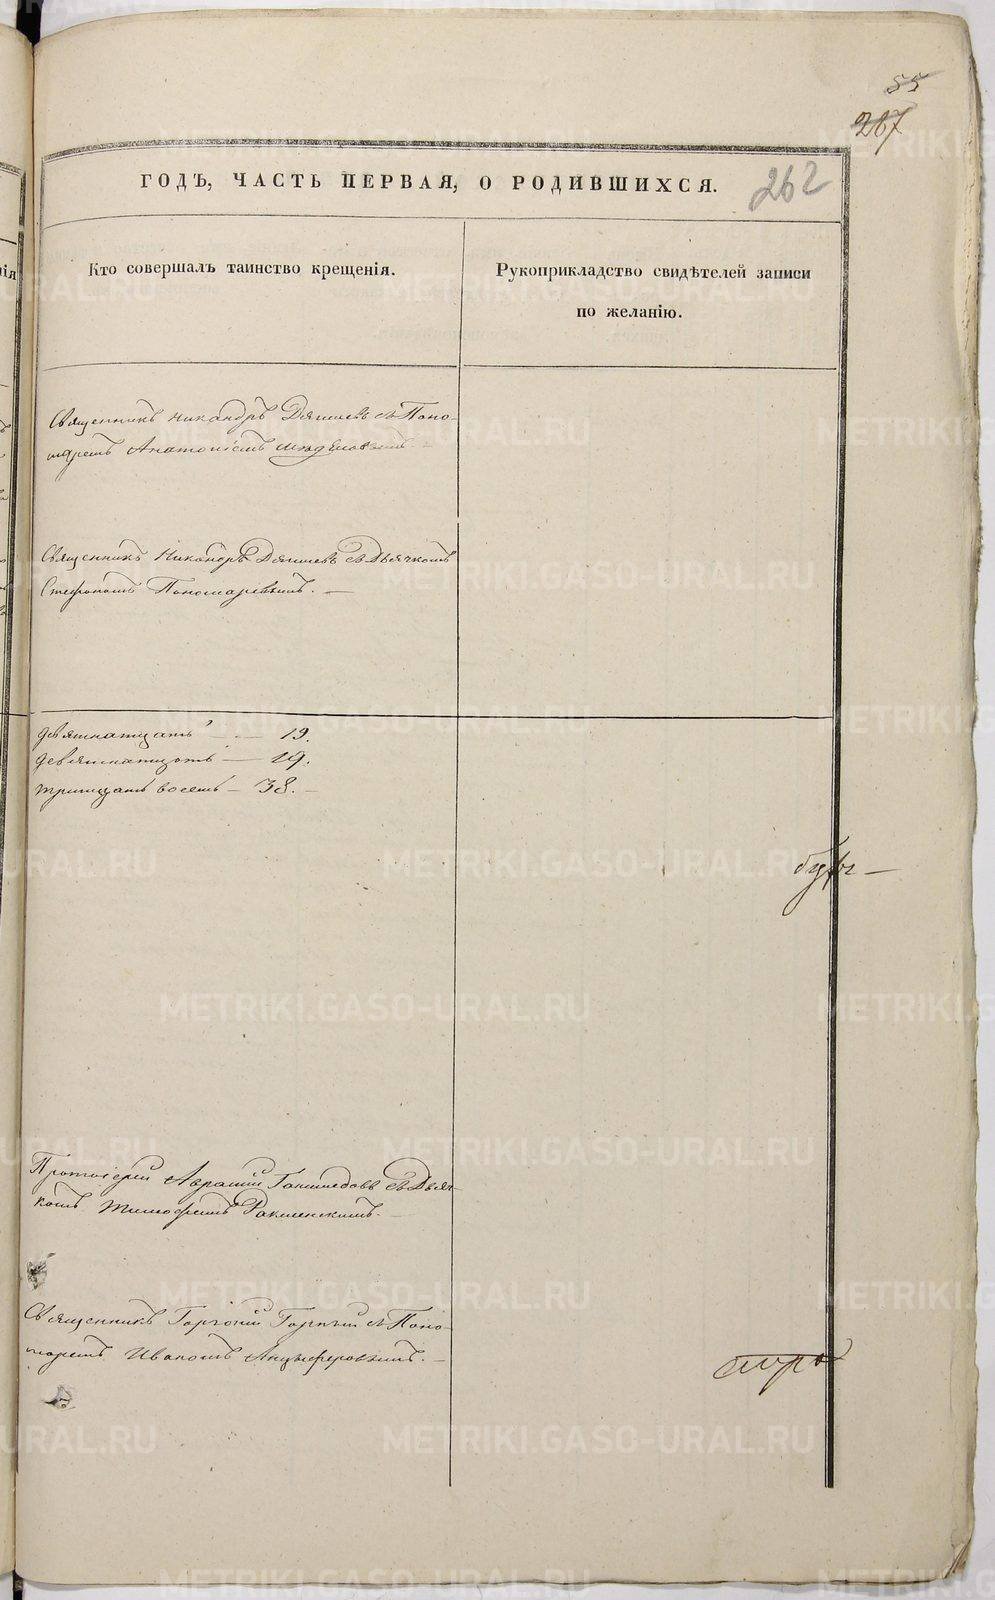 55
267
262
ГОДЪ, ЧАСТЬ ПЕРВАЯ, О РОДИВШИХСЯ.
Кто совершалъ таинство крещенія.
Рукоприкладство свидѣтелей записи
по желанію.
Священникъ Никандръ Дягилевъ съ Поно-
маремъ Анатоліемъ
Священникъ Никаноръ Дягилевъ съ Дьячкомъ
Стефаномъ Пономаревымъ. —
девятнатцать — 19.
девятнатцать — 19.
тритцать восемь — 38. —
Протоіерей Авраамій съ Дьяч-
комъ Тимофеемъ
Священникъ Горгоній съ Поно-
маремъ Иваномъ Анцыферовымъ. —
METRIKI.GASO-URAL.RU